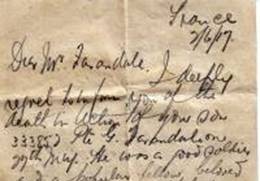 France
2/6/17
Dear Mr. Farandale. I deeply
regret to inform you of the
death in Action of your son
333857 Pte G. Farandale
He was a good soldier
a popular fellow, beloved